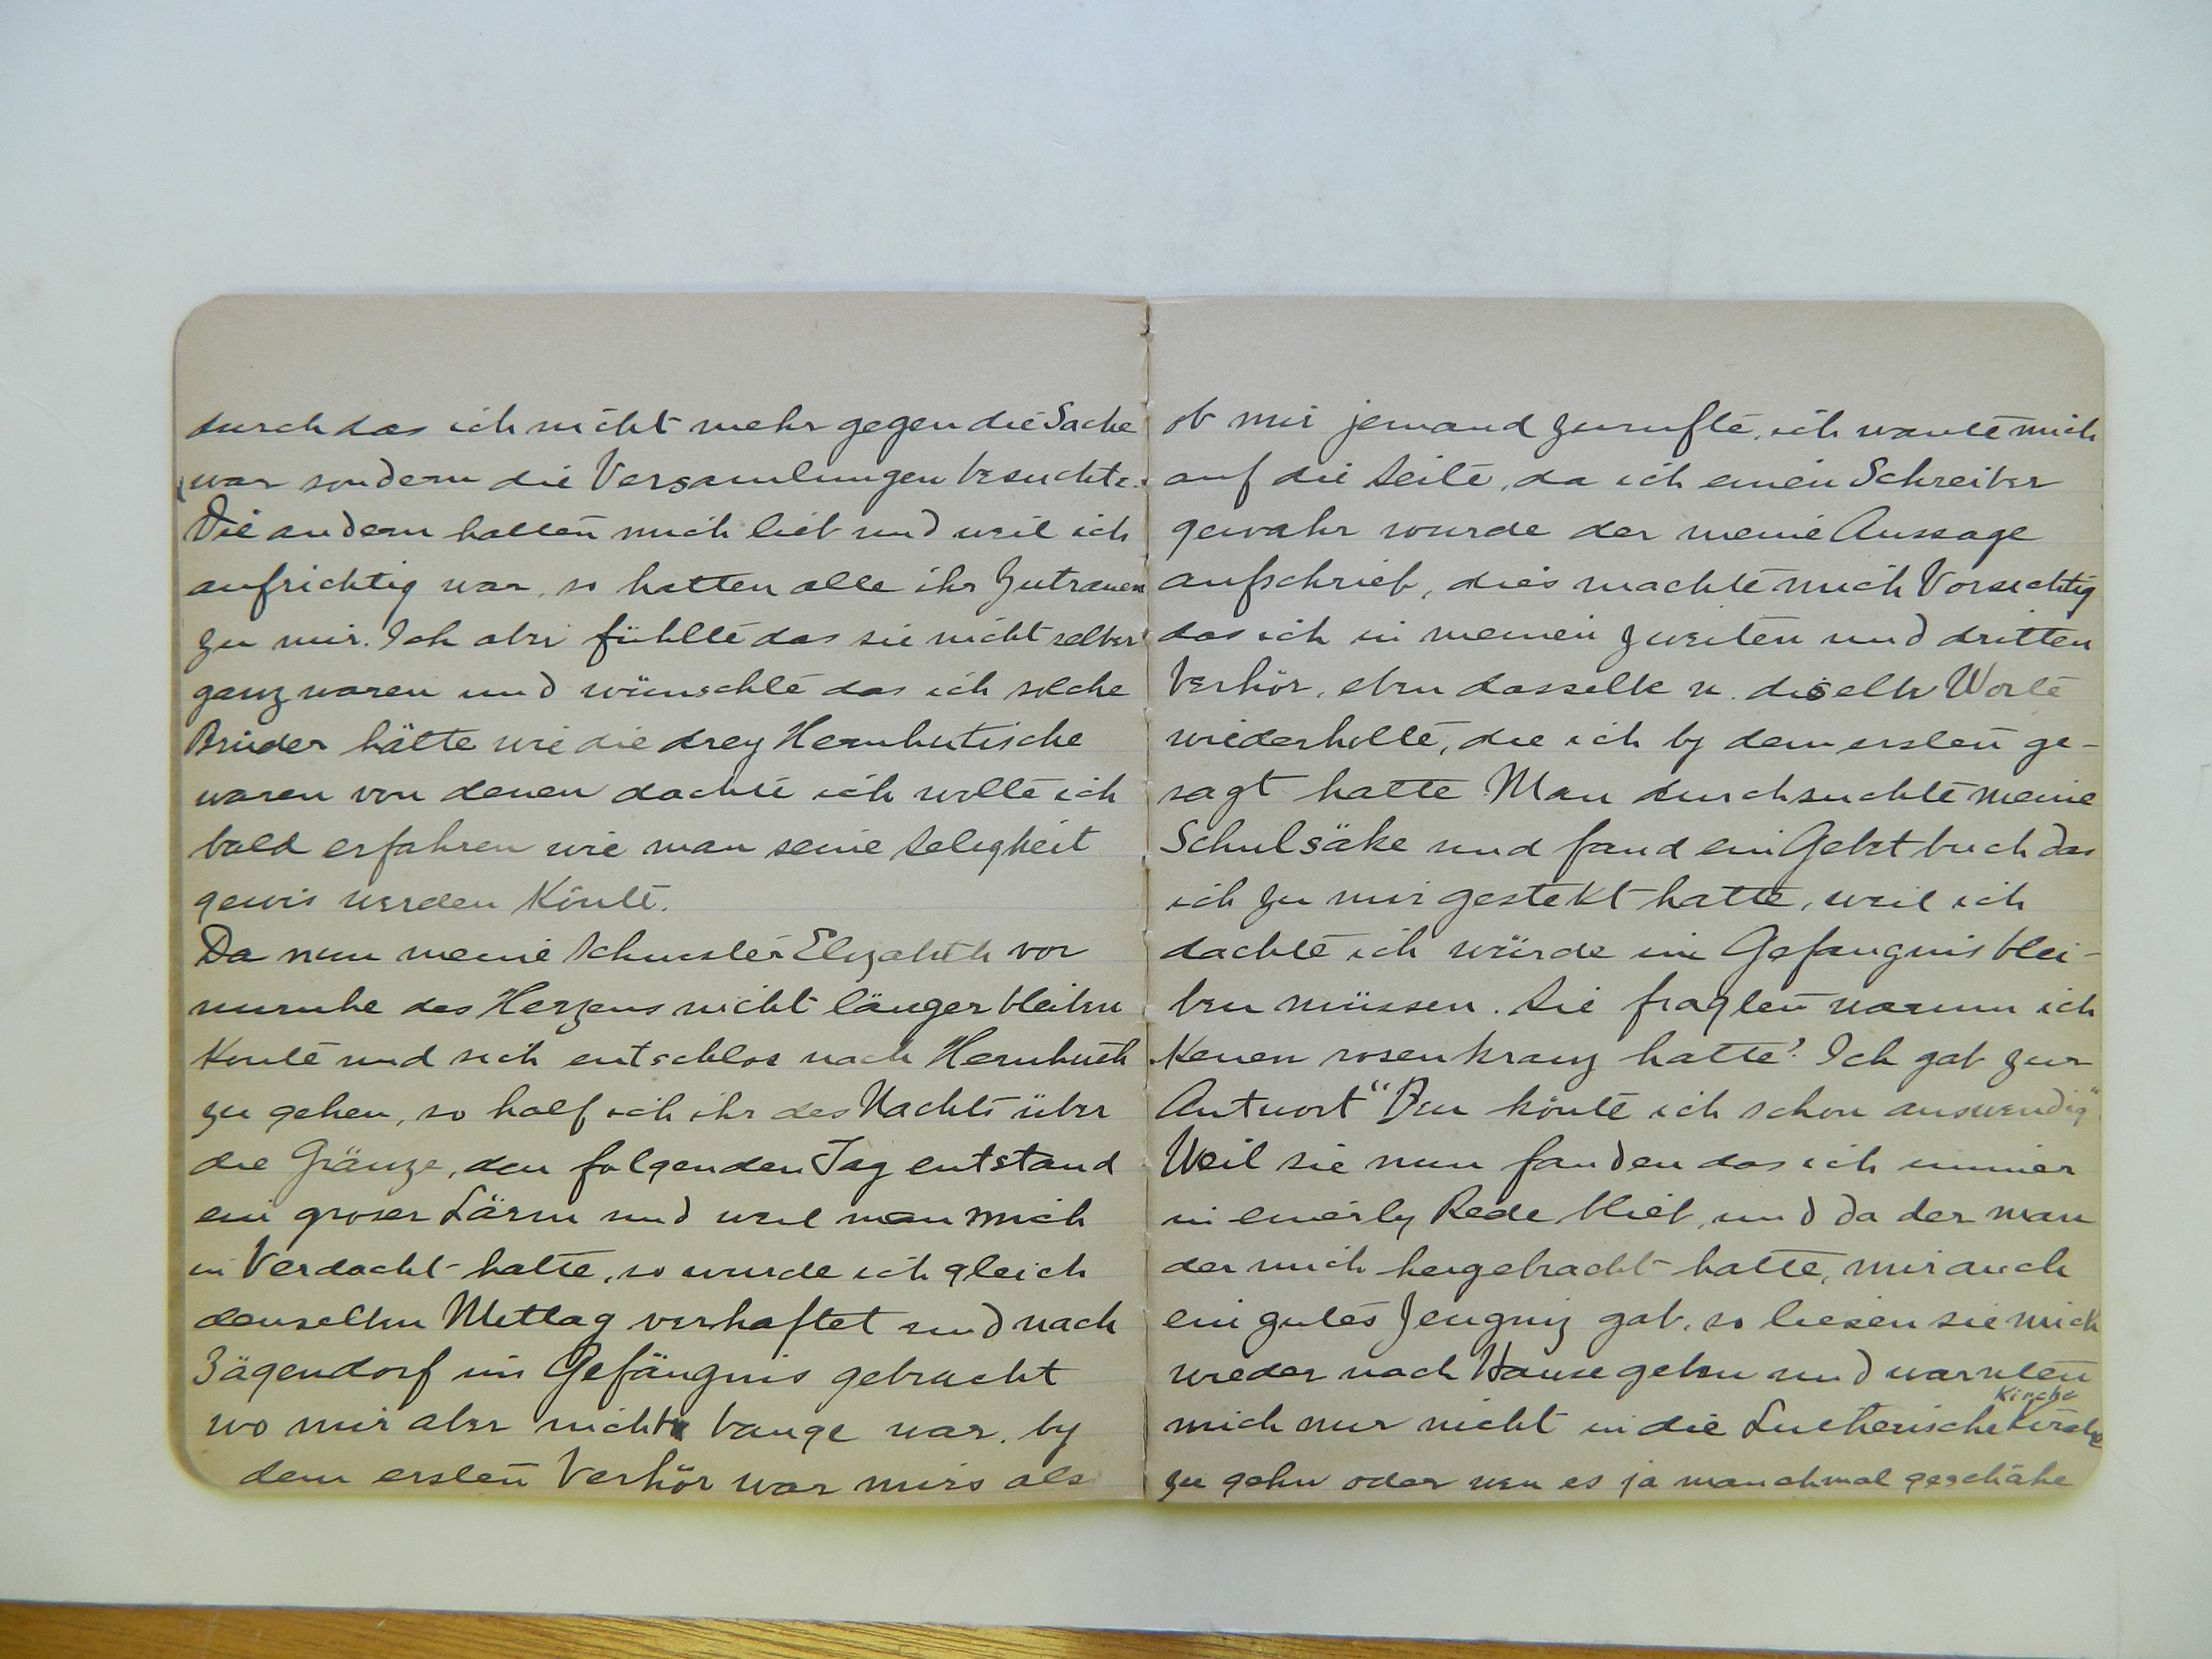 durch das ich nicht mehr gegen die Sache
war sondern die Versamlungen besuchte.
Die andern hatten mich lieb und weil ich
aufrichtig war, so hatten alle ihr Zutrauen
zu mir. Ich aber fühlte das sie nicht selber
ganz waren und wünschte das ich solche
Brüder hätte wie die drey Hernhutische
waren von denen dachte ich wolte ich
bald erfahren wie man seine Seligkeit
gewis werden könte.
Da nun meine Schwester Elizabeth vor
unruhe des Herzens nicht länger bleiben
konte und sich entschlos nach Hernhuth
zu gehen, so half ich ihr des Nachts über
die Gränze, den folgenden Tag entstand
ein groser Lärm und weil man mich
in Verdacht hatte, so wurde ich gleich
denselben Mittag verhaftet und nach
Jägendorf ins Gefängnis gebracht
wo mir aber nicht bange war. by
dem ersten Verhör war mirs als
ob mir jemand zurufte, ich wante mich
auf die Seite, da ich einen Schreiber
gewahr wurde der meine Aussage
aufschrieb, dies machte mich Vorsichtig
das ich in meinen zweiten und dritten
Verhör, eben dasselbe u. dieselbe Worte
wiederholte, die ich by dem ersten ge-
sagt hatte. Man durchsuchte meine
Schulsäke und fand ein Gebetbuch das
ich zu mir gestekt hatte, weil ich
dachte ich würde im Gefangnis blei-
ben müssen. Sie fragten warum ich
kenen rosenkranz hatte? Ich gab zur
Antwort "Den könte ich schon auswendig"
Weil sie nun fanden das ich immer
in einerly Rede blieb, und da der man
der mich hergebracht hatte, mir auch
ein gutes Zeugniz gab, so liesen sie mich
wieder nach Hause gehen und warnten
Kirche
mich nur nicht in die Lutherische Kirche
zu gehn oder wen es ja manchmal geschähe